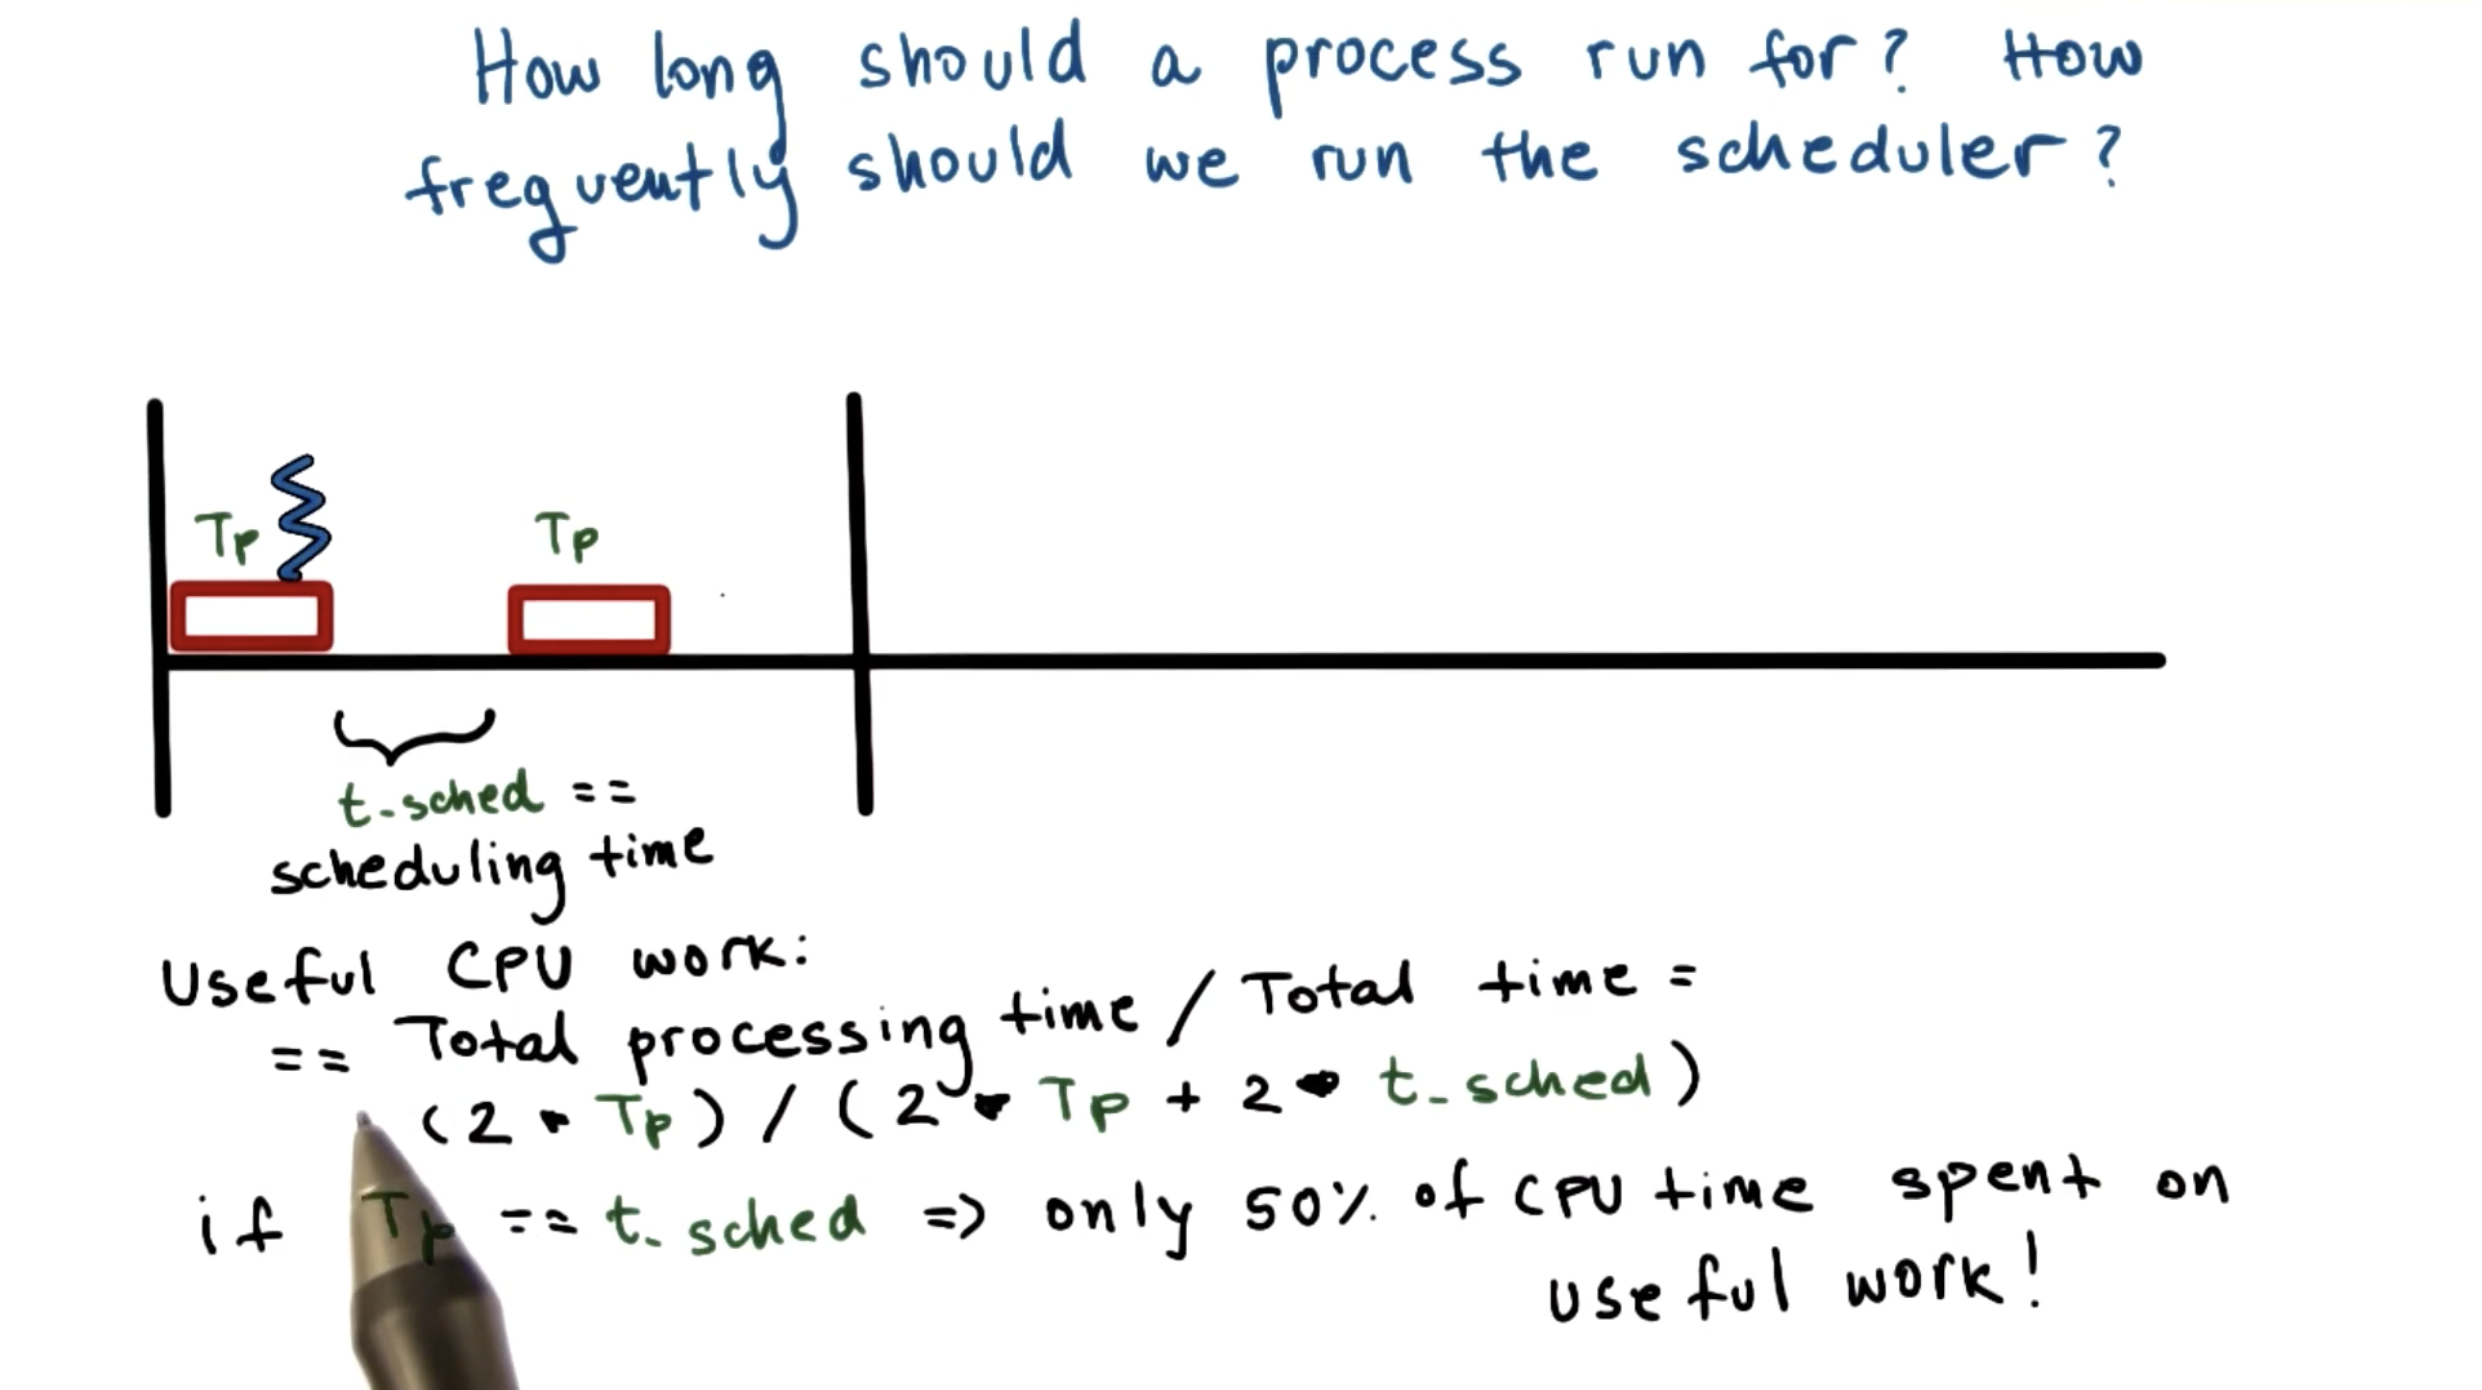 How long should a process run for? How
frequently should we run the scheduler?
Tp
Tp
t_sched ==
scheduling time
Useful CPU work:
== Total processing time / Total time =
(2 * Tp) / (2 * Tp + 2 * t_sched)
if Tp == t_sched => only 50% of CPU time spent on
useful work!